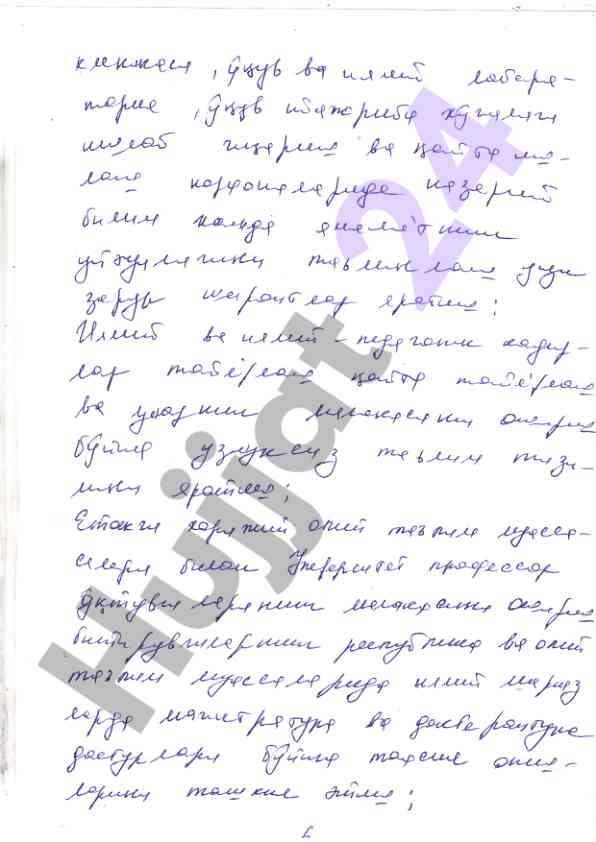 ўқув ва илмий лабара-
тория , ўқув тажриба хўжалиги
ишлаб чиқариш ва қайта иш-
лаш корхоналарида назарий
билим ҳамда амалиётнинг
уйғунлигини таъминлаш учун
зарур шароитлар яратиш;
Илмий ва илмий-педагогик кадр-
лар тайёрлаш қайта тайёрлаш
ва уларнинг малакасини ошириш
бўйича узлуксиз таълим тизи-
мини яратиш;
Етакчи хорижий олий таълим муасса-
салари билан Университет профессор
ўқитувчиларининг малакасини ошириш
битирувчиларнинг республика ва олий
таълим муассаларида илмий марказ
ларда магистратура ва докторантура
дастурлари бўйича таҳсил олиш-
ларини ташкил этиш;
Hujjat 24